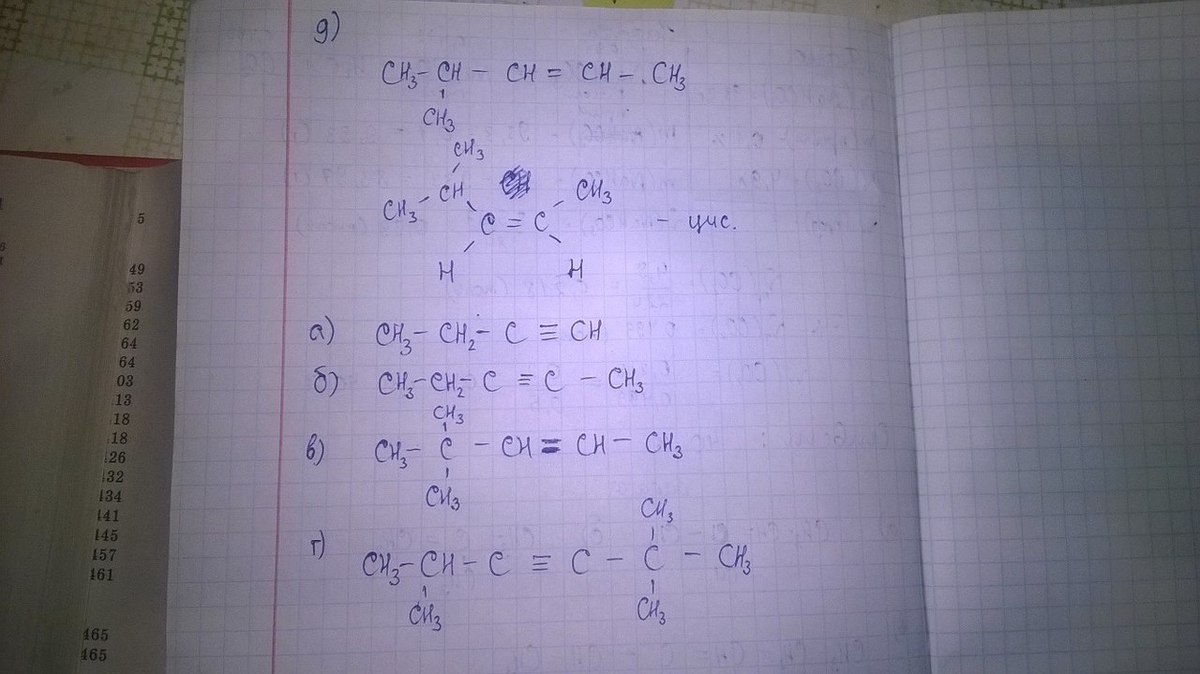 д)
CH₃ – CH – CH = CH – CH₃
CH₃
CH₃
CH₃ – CH CH₃
C = C – цис.
H H
а) CH₃ – CH₂ – C ≡ CH
б) CH₃ – CH₂ – C ≡ C – CH₃
CH₃
в) CH₃ – C – CH = CH – CH₃
CH₃
CH₃
г) CH₃ – CH – C ≡ C – C – CH₃
CH₃ CH₃
5
49
53
59
62
64
64
03
13
18
18
426
432
434
441
445
457
461
465
465